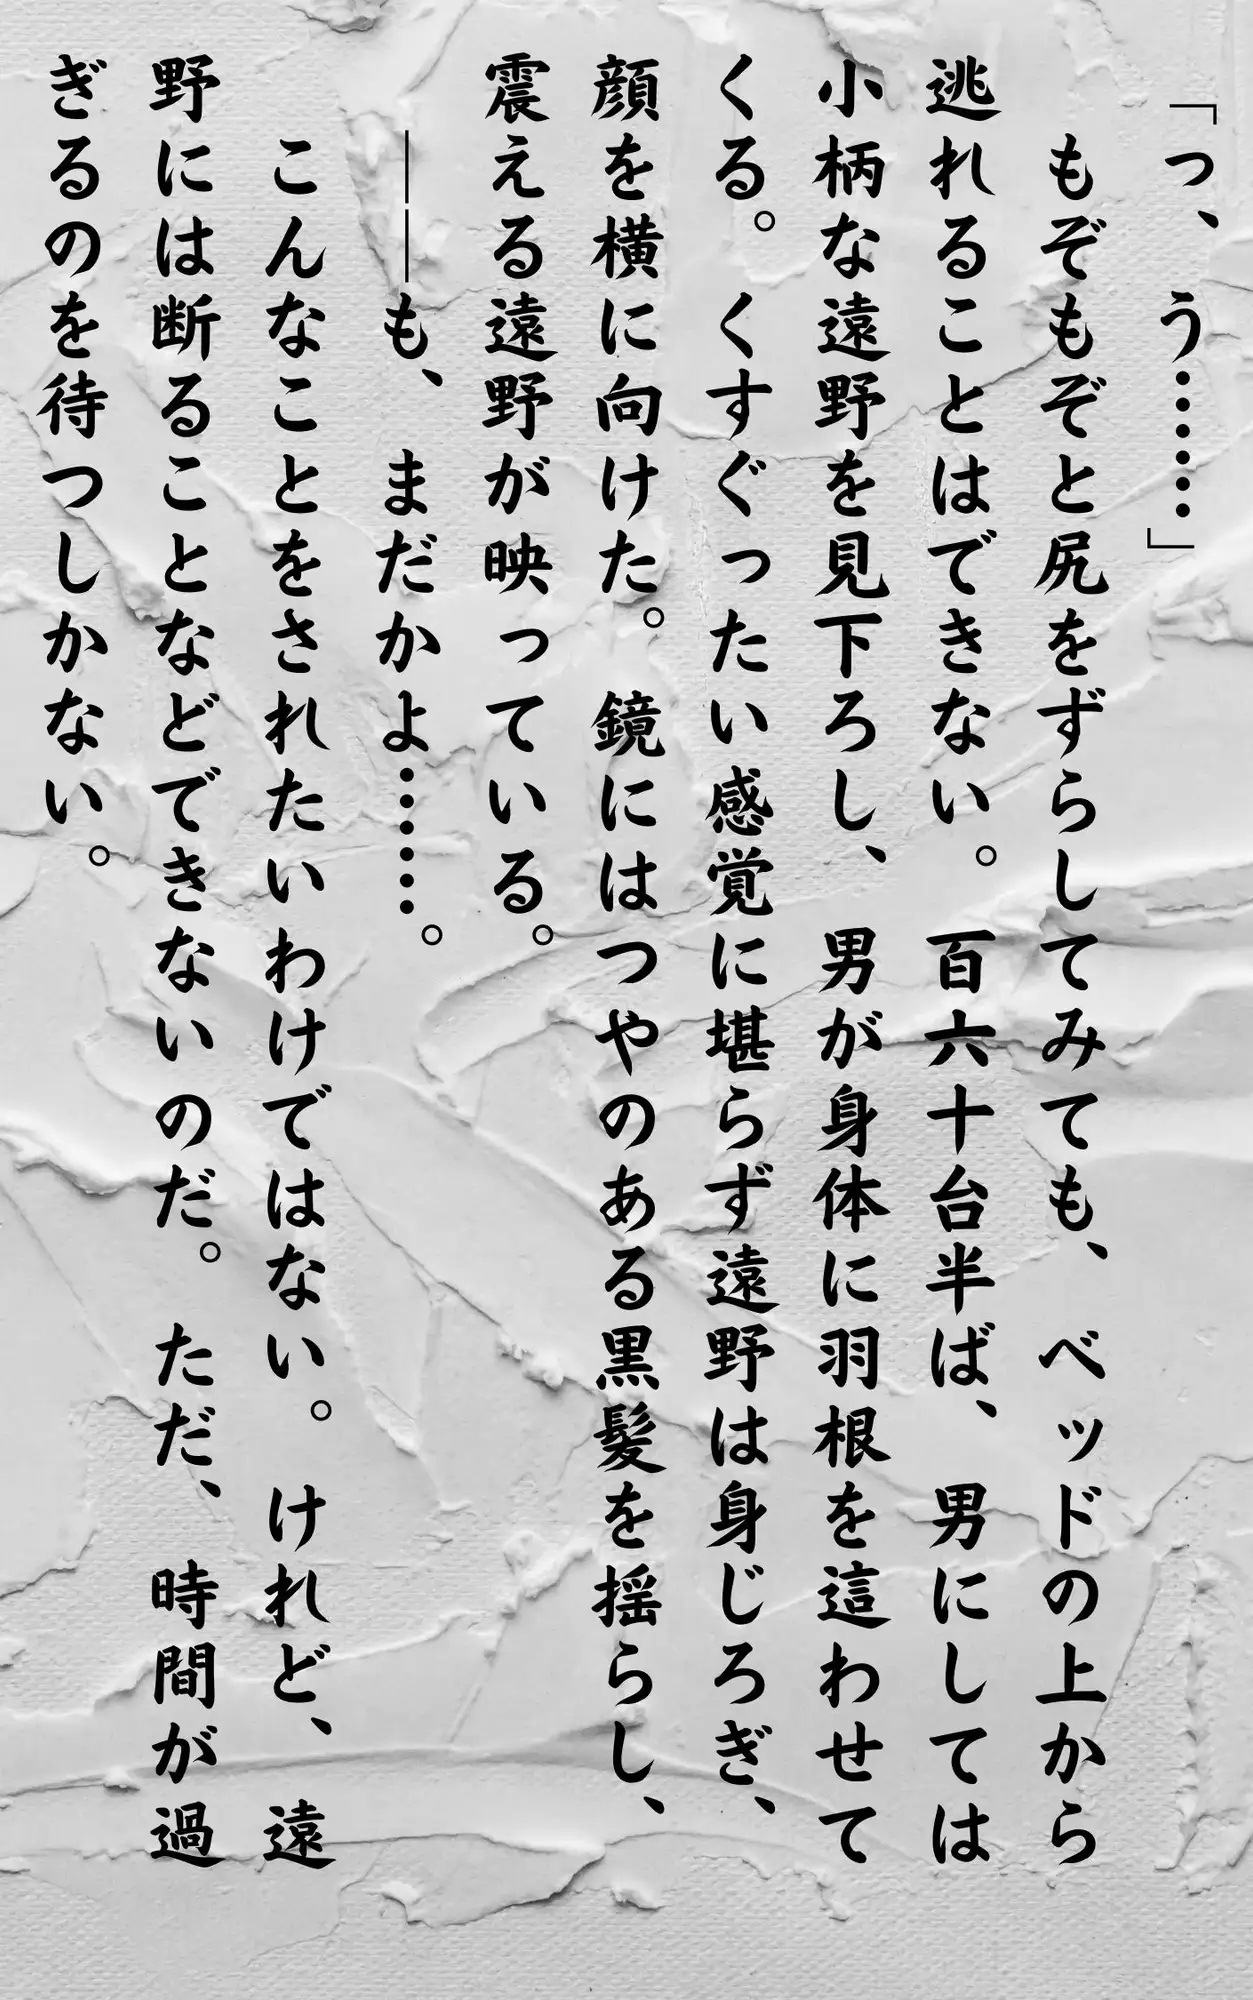 「っ、う……」
もぞもぞと尻をずらしてみても、ベッドの上から
逃れることはできない。百六十台半ば、男にしては
小柄な遠野を見下ろし、男が身体に羽根を這わせて
くる。くすぐったい感覚に堪らず遠野は身じろぎ、
顔を横に向けた。鏡にはつやのある黒髪を揺らし、
震える遠野が映っている。
――も、まだかよ……。
こんなことをされたいわけではない。けれど、遠
野には断ることなどできないのだ。ただ、時間が過
ぎるのを待つしかない。